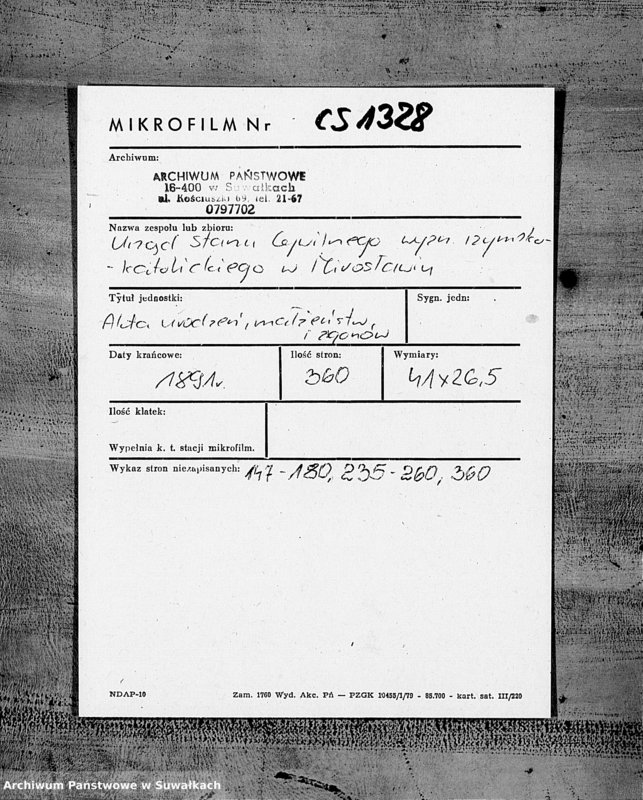 MIKROFILM Nr CS 1328
Archiwum:
ARCHIWUM PAŃSTWOWE
16-400 w Suwałkach
ul. Kościuszki 69, tel. 21-67
0797702
Nazwa zespołu lub zbioru:
Urząd Stanu Cywilnego wyzn. rzymsko-
-katolickiego w Mirosławiu
Tytuł jednostki:
Sygn. jedn:
Akta urodzeń, małżeństw,
i zgonów
Daty krańcowe:
Ilość stron:
Wymiary:
1891r.
360
41x26,5
Ilość klatek:
Wypełnia k. t. stacji mikrofilm.
Wykaz stron niezapisanych: 147-180, 235-260, 360
NDAP-10
Zam. 1760 Wyd. Akc. Pń — PZGK 10455/1/79 - 85.700 - kart. sat. III/220
Archiwum Państwowe w Suwałkach